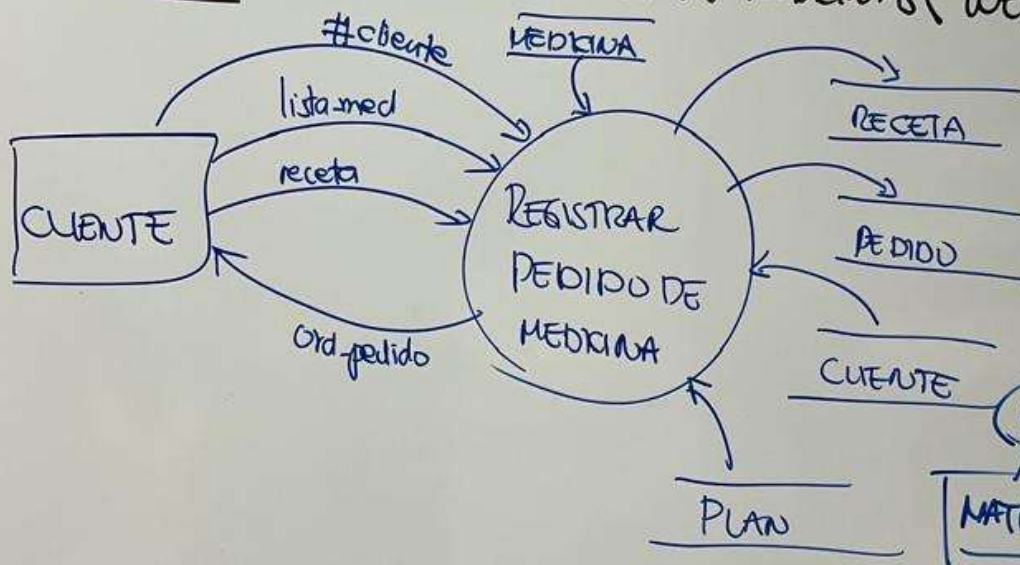 #cliente
MEDICINA
lista-med
RECETA
receta
CLIENTE
REGISTRAR
PEDIDO DE
MEDICINA
PEDIDO
ord-pedido
CLIENTE
PLAN
MAT